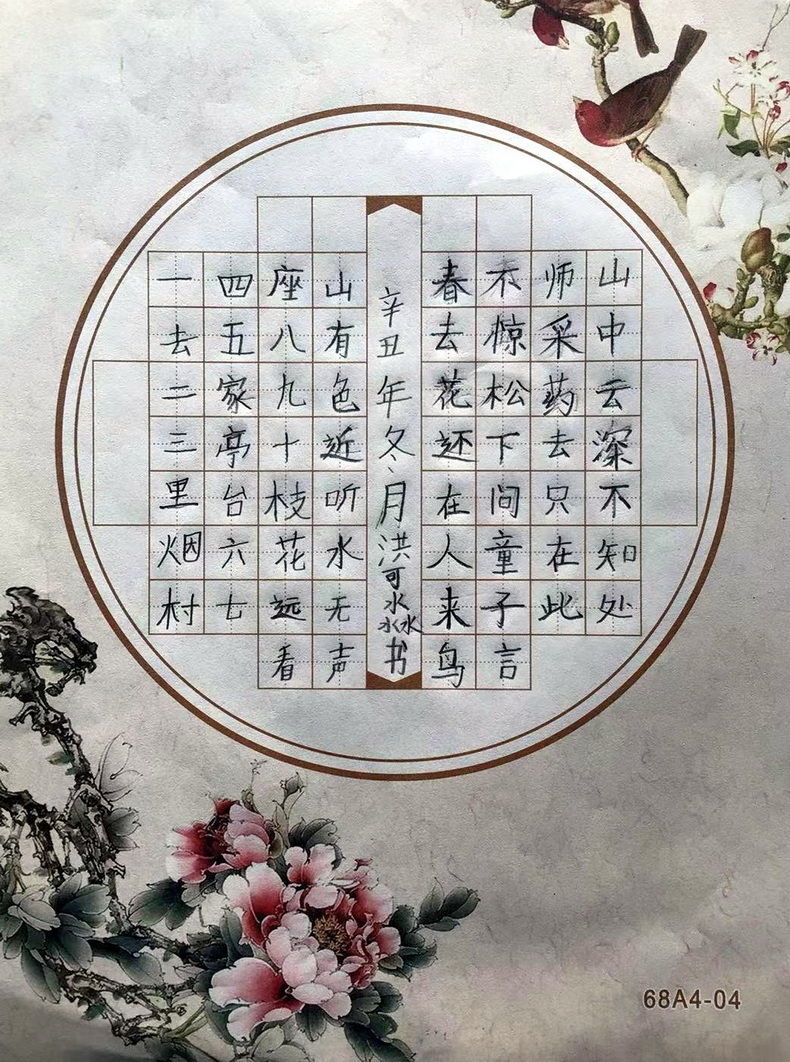 一去二三里烟村
四五家亭台六七
座八九十枝花远看
山有色近听水无声
辛丑年冬月洪可淼书
春去花还在人来鸟
不惊松下间童子言
师采药去只在此
山中云深不知处
68A4-04